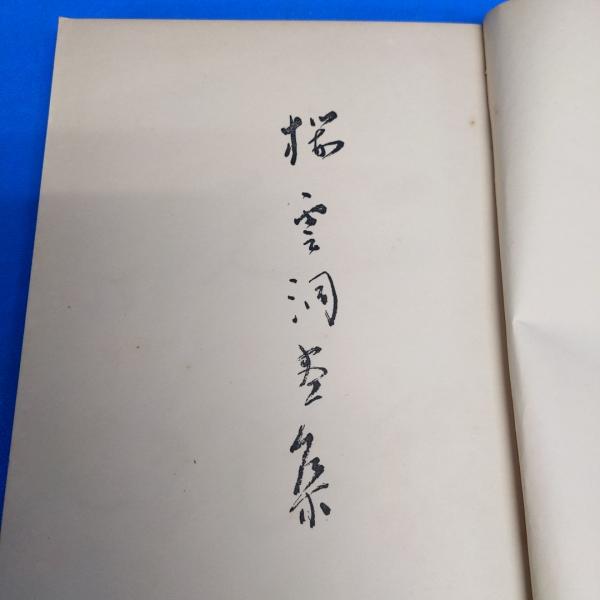 櫻雲洞畫集